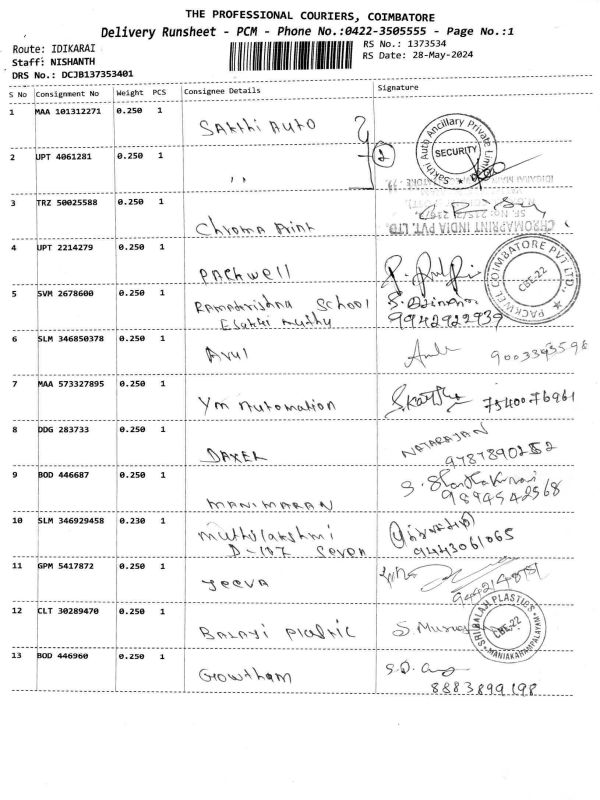 THE PROFESSIONAL COURIERS, COIMBATORE
Delivery Runsheet - PCM - Phone No.:0422-3505555 - Page No.:1
Route: IDIKARAI
RS No.: 1373534
Staff: NISHANTH
RS Date: 28-May-2024
DRS No.: DCJB137353401
S No Consignment No Weight PCS Consignee Details Signature
1 MAA 101312271 0.250 1 Sakthi Auto
Sakthi Auto Ancillary Private Limi
SECURITY
2 UPT 4061281 0.250 1 ,, 2
3 TRZ 50025588 0.250 1 Chroma Print
CHROMAPRINT INDIA PVT. LTD.
4 UPT 2214279 0.250 1 Packwell
PACKWEL COIMBATORE PVT LTD.
CBE-22
5 SVM 2678600 0.250 1 Ramakrishna School
Esakki Muthu 9942922939
6 SLM 346850378 0.250 1 Arul 9003393598
7 MAA 573327895 0.250 1 Ym Automation S.Karthi 7540076961
8 DDG 283733 0.250 1 DAXEL NATARAJAN
9 BOD 446687 0.250 1 MANIMARAN
9894542568
10 SLM 346929458 0.230 1 Muthulakshmi
D-107 Seven 9443061065
11 GPM 5417872 0.250 1 Jeeva
12 CLT 30289470 0.250 1 Balaji Plastic
SRI BALAJI PLASTICS
CBE-22
MANIAKARAMPALAYAM
13 BOD 446960 0.250 1 Gowtham
8883899198